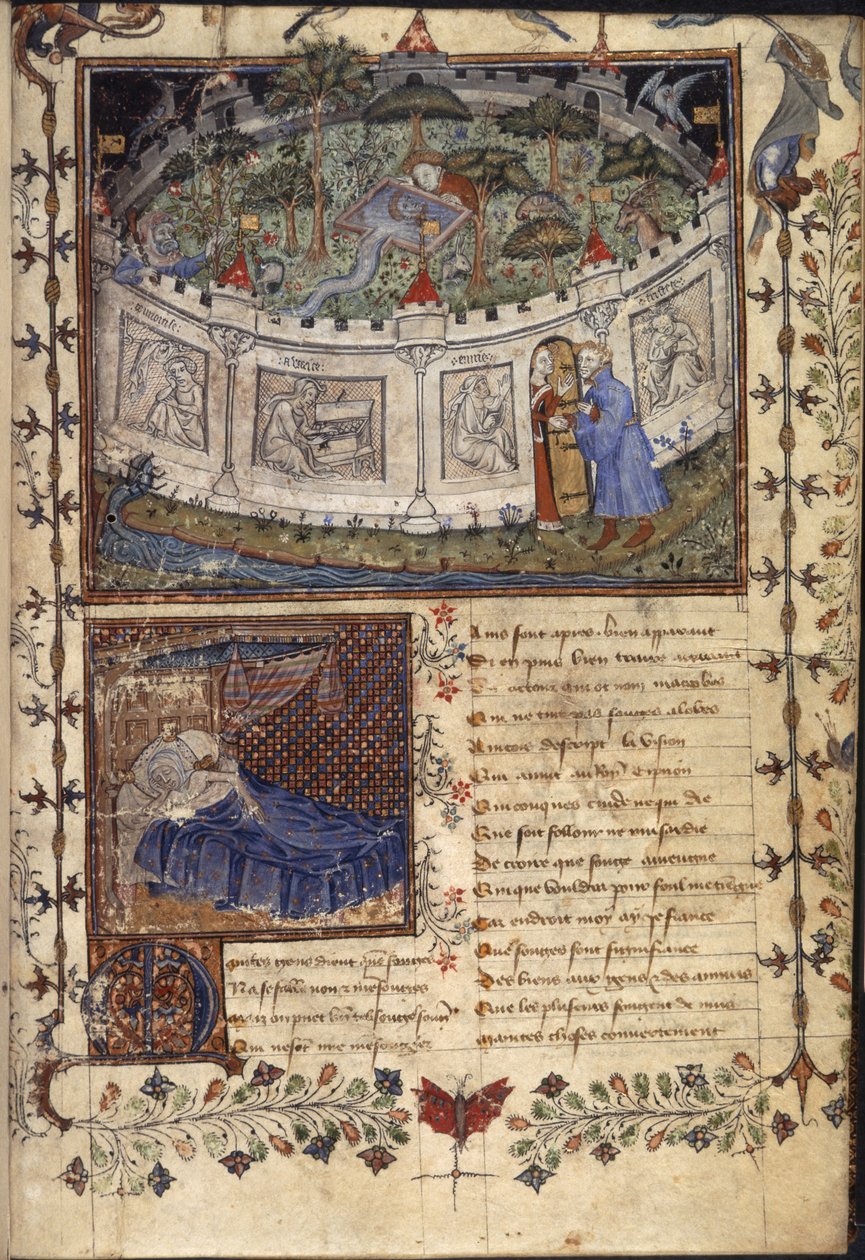 auarice :
enuie :
Maintes gens dient que songes
Na se fable non z mensonges
Mais on puet bn̄ tels songes songier
Qui ne sont mie mensongier
Ains sont apres bien apparant
Si en puis bien traire a garant
acteur qui ot nom macrobes
Qui ne tint pas songes a lobes
Aincois descript la vision
Qui auint au Roy Cipion
Quiconques cuide ne qui die
Que soit folleur ne musardie
De croire que songe auiengne
Qui que vouldra pour foul me tiengne
Car endroit moy ay ge fiance
Que songes sont signifiance
Des biens aux gens z des annuis
Que les plusieurs songent de nuis
Maintes choses couuertement